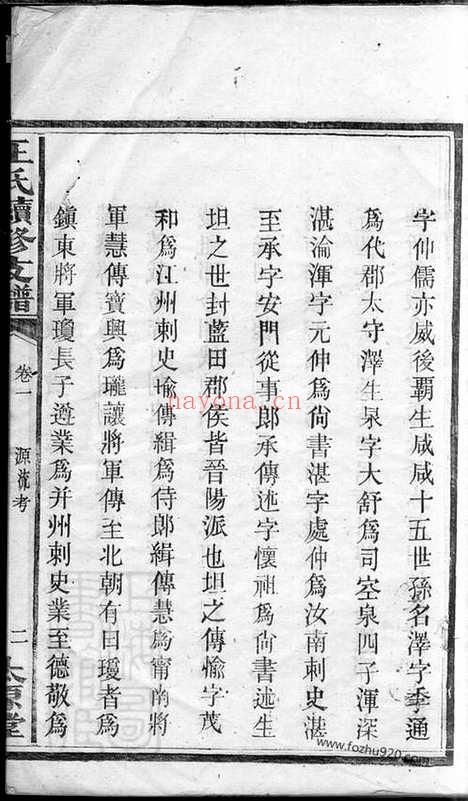 字仲儒亦威後覇生咸咸十五世孫名澤字季通
爲代郡太守澤生泉字大舒爲司空泉四子渾深
湛淪渾字元仲爲尙書湛字處仲爲汝南刺史湛
至承字安門從事郎承傳述字懷祖爲尙書述生
坦之世封藍田郡侯皆晉陽派也坦之傳愉字茂
和爲江州刺史愉傳緝爲侍郎緝傳慧爲甯南將
軍慧傳寶興爲瓏讓將軍傳至北朝有曰瓊者爲
鎭東將軍瓊長子遵業爲并州刺史業至德敬爲
王氏續修支譜
卷一
源流考
二
太原堂
nayona.cn
www.fozhu920.com